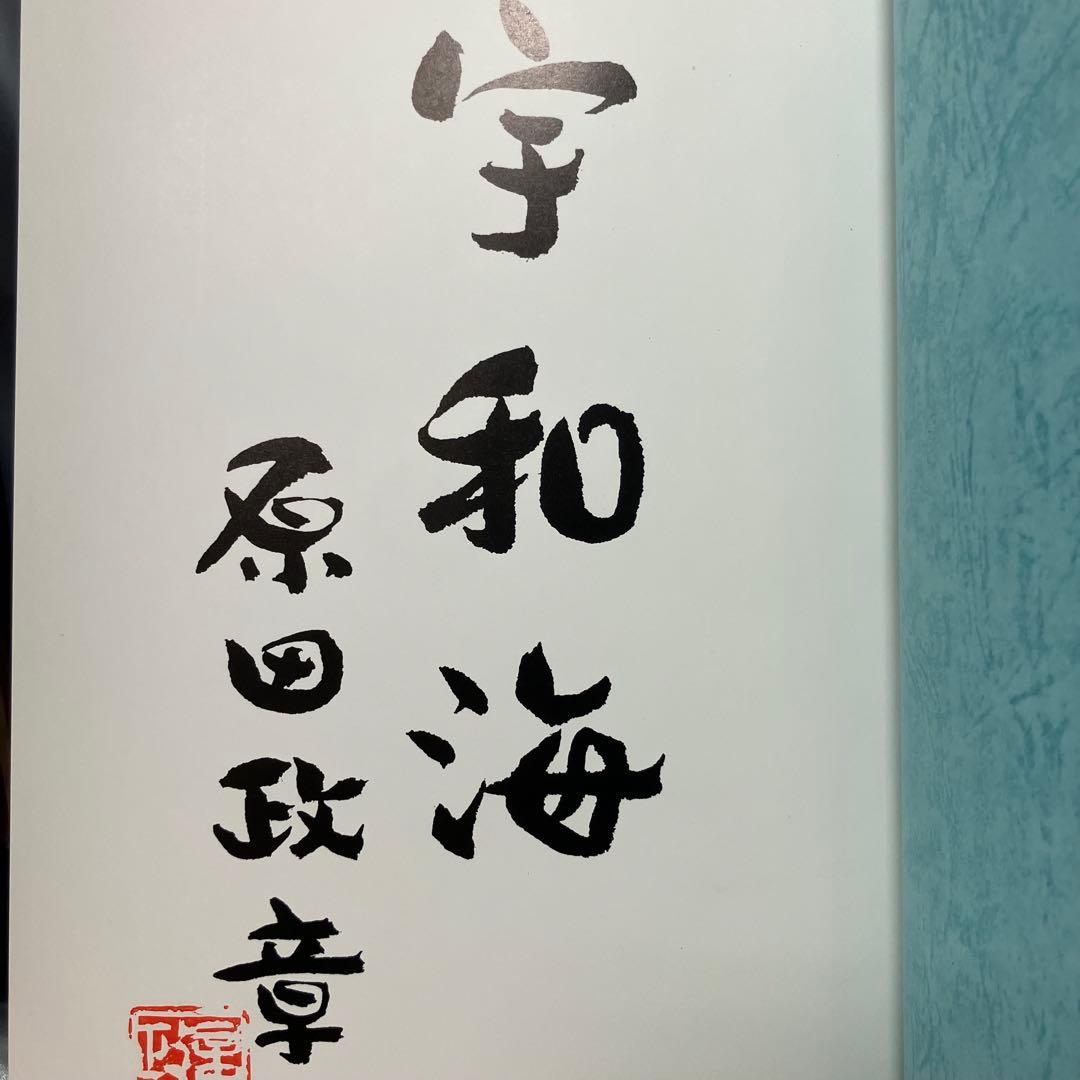 宇和海
原田政章